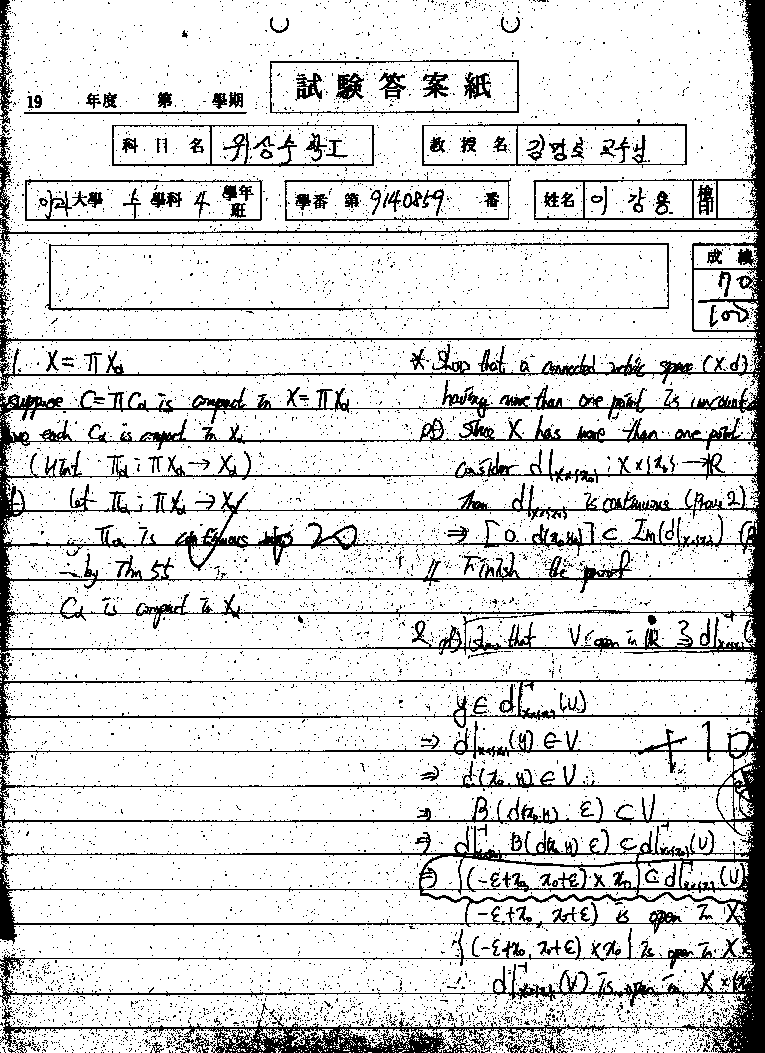 試驗答案紙
19 年度 第 學期
科目名 위상수학 I
教授名 김명호 교수님
大學 수 學科 4 學年 班
學番 第 9140859 番
姓名 이강용
成績
70
100
1. X = ΠXα
suppose C = ΠCα is compact in X = ΠXα
each Cα is compact in Xα
(Hint Πα : ΠXα → Xα)
let Πα : ΠXα → Xα
Πα is continuous 20
by Thm 55
Cα is compact in Xα
* Show that a connected metric space (X.d)
having more than one point is
pf) Since X has more than one point
consider d|x×{x0} : X×{x0} → R
Then d|x×{x0} is continuous (Prove 2)
⇒ [0. d(x0,y0)] ⊂ Im(d|x×{x0})
// Finish the proof
2. pf) show that V open in R
y ∈ d|⁻¹x×{x0}(V)
⇒ d|x×{x0}(y) ∈ V +10
⇒ d(x0.y) ∈ V
⇒ B(d(x0,y). ε) ⊂ V
⇒ d|⁻¹ B(d(x0,y) ε) ⊂ d|⁻¹x×{x0}(V)
⇒ {(-ε+x0, x0+ε) × x0} ⊂ d|⁻¹x×{x0}(V)
(-ε+x0, x0+ε) is open in X
{(-ε+x0, x0+ε) × x0} is open in X×
d|⁻¹x×{x0}(V) is open in X×